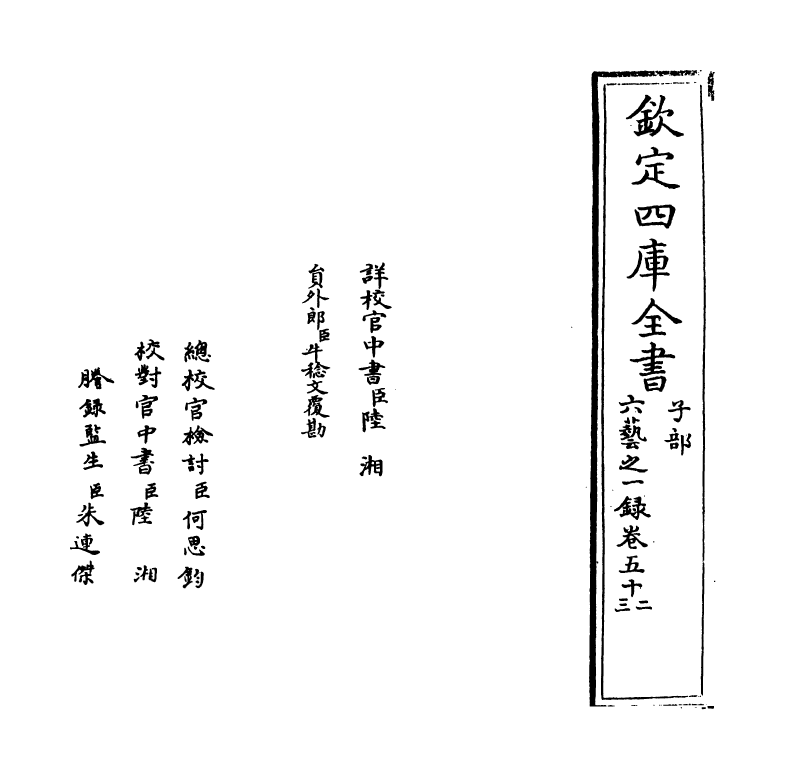 欽定四庫全書
子部
六藝之一録卷五十二三
詳校官中書臣陸湘
員外郎臣牛稔文覆勘
總校官檢討臣何思鈞
校對官中書臣陸湘
謄録監生臣朱連傑